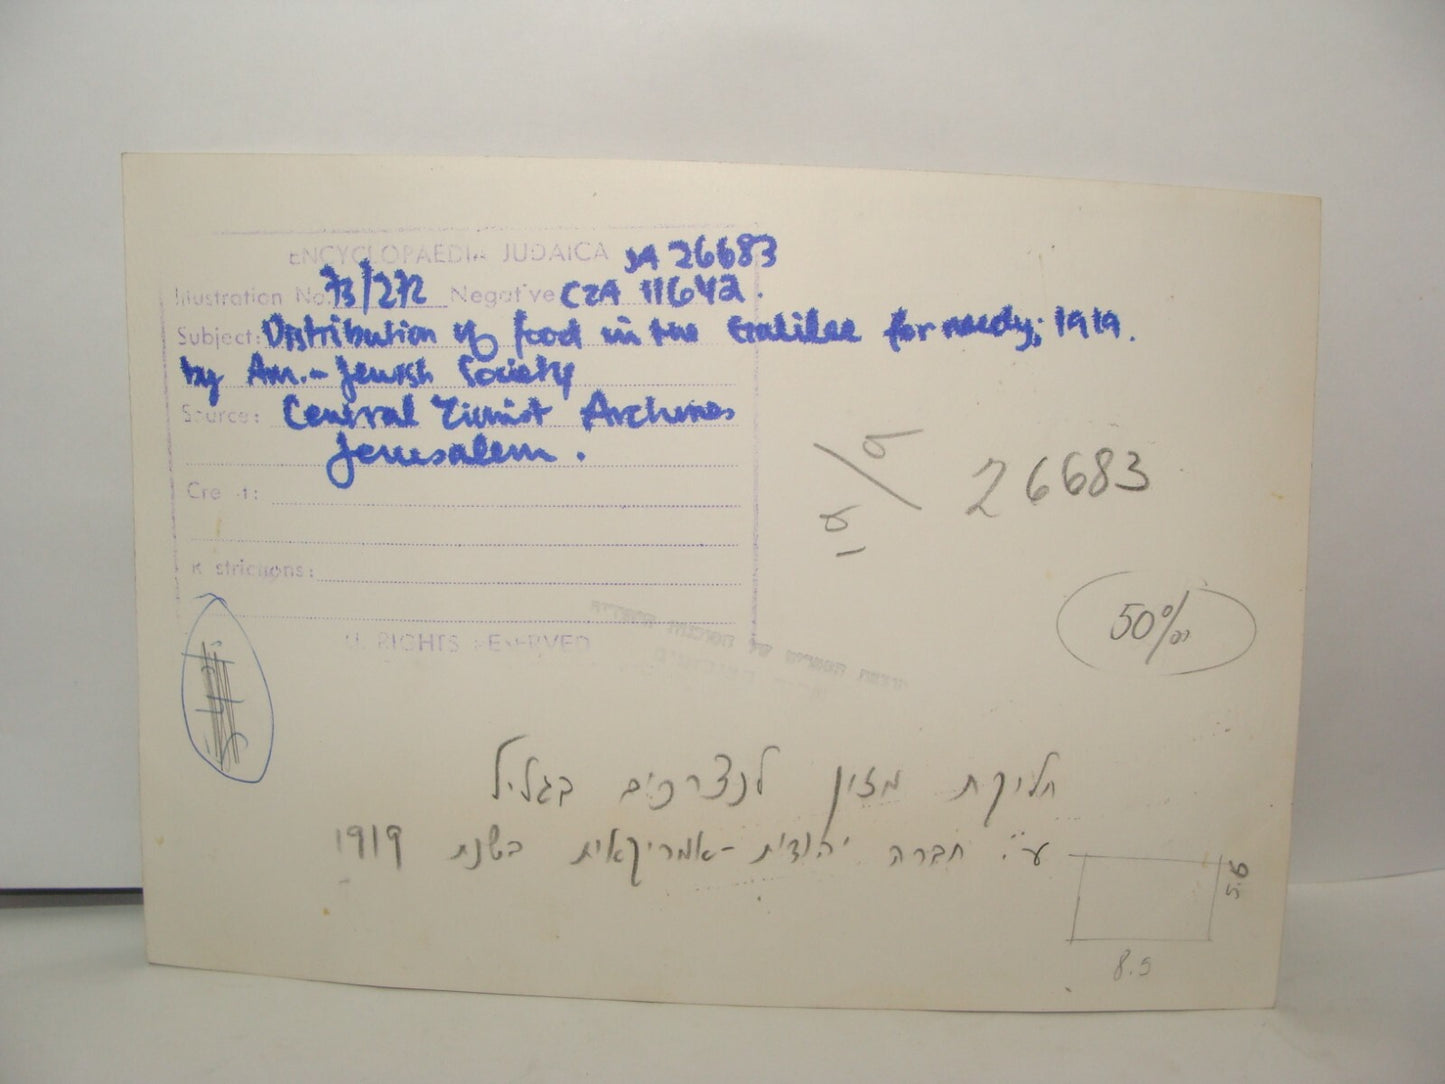 ENCYCLOPAEDIA JUDAICA JA 26683
Illustration No. 73/272 Negative CZA 11642.
Subject: Distribution of food in the Galilee for needy; 1919.
by Am.-Jewish Society
Source: Central Zionist Archives
Jerusalem.
26683
Credit:
Restrictions:
50%
RIGHTS RESERVED
חלוקת מזון לנצרכים בגליל
ע"י חברה יהודית-אמריקאית בשנת 1919
5.6
8.5